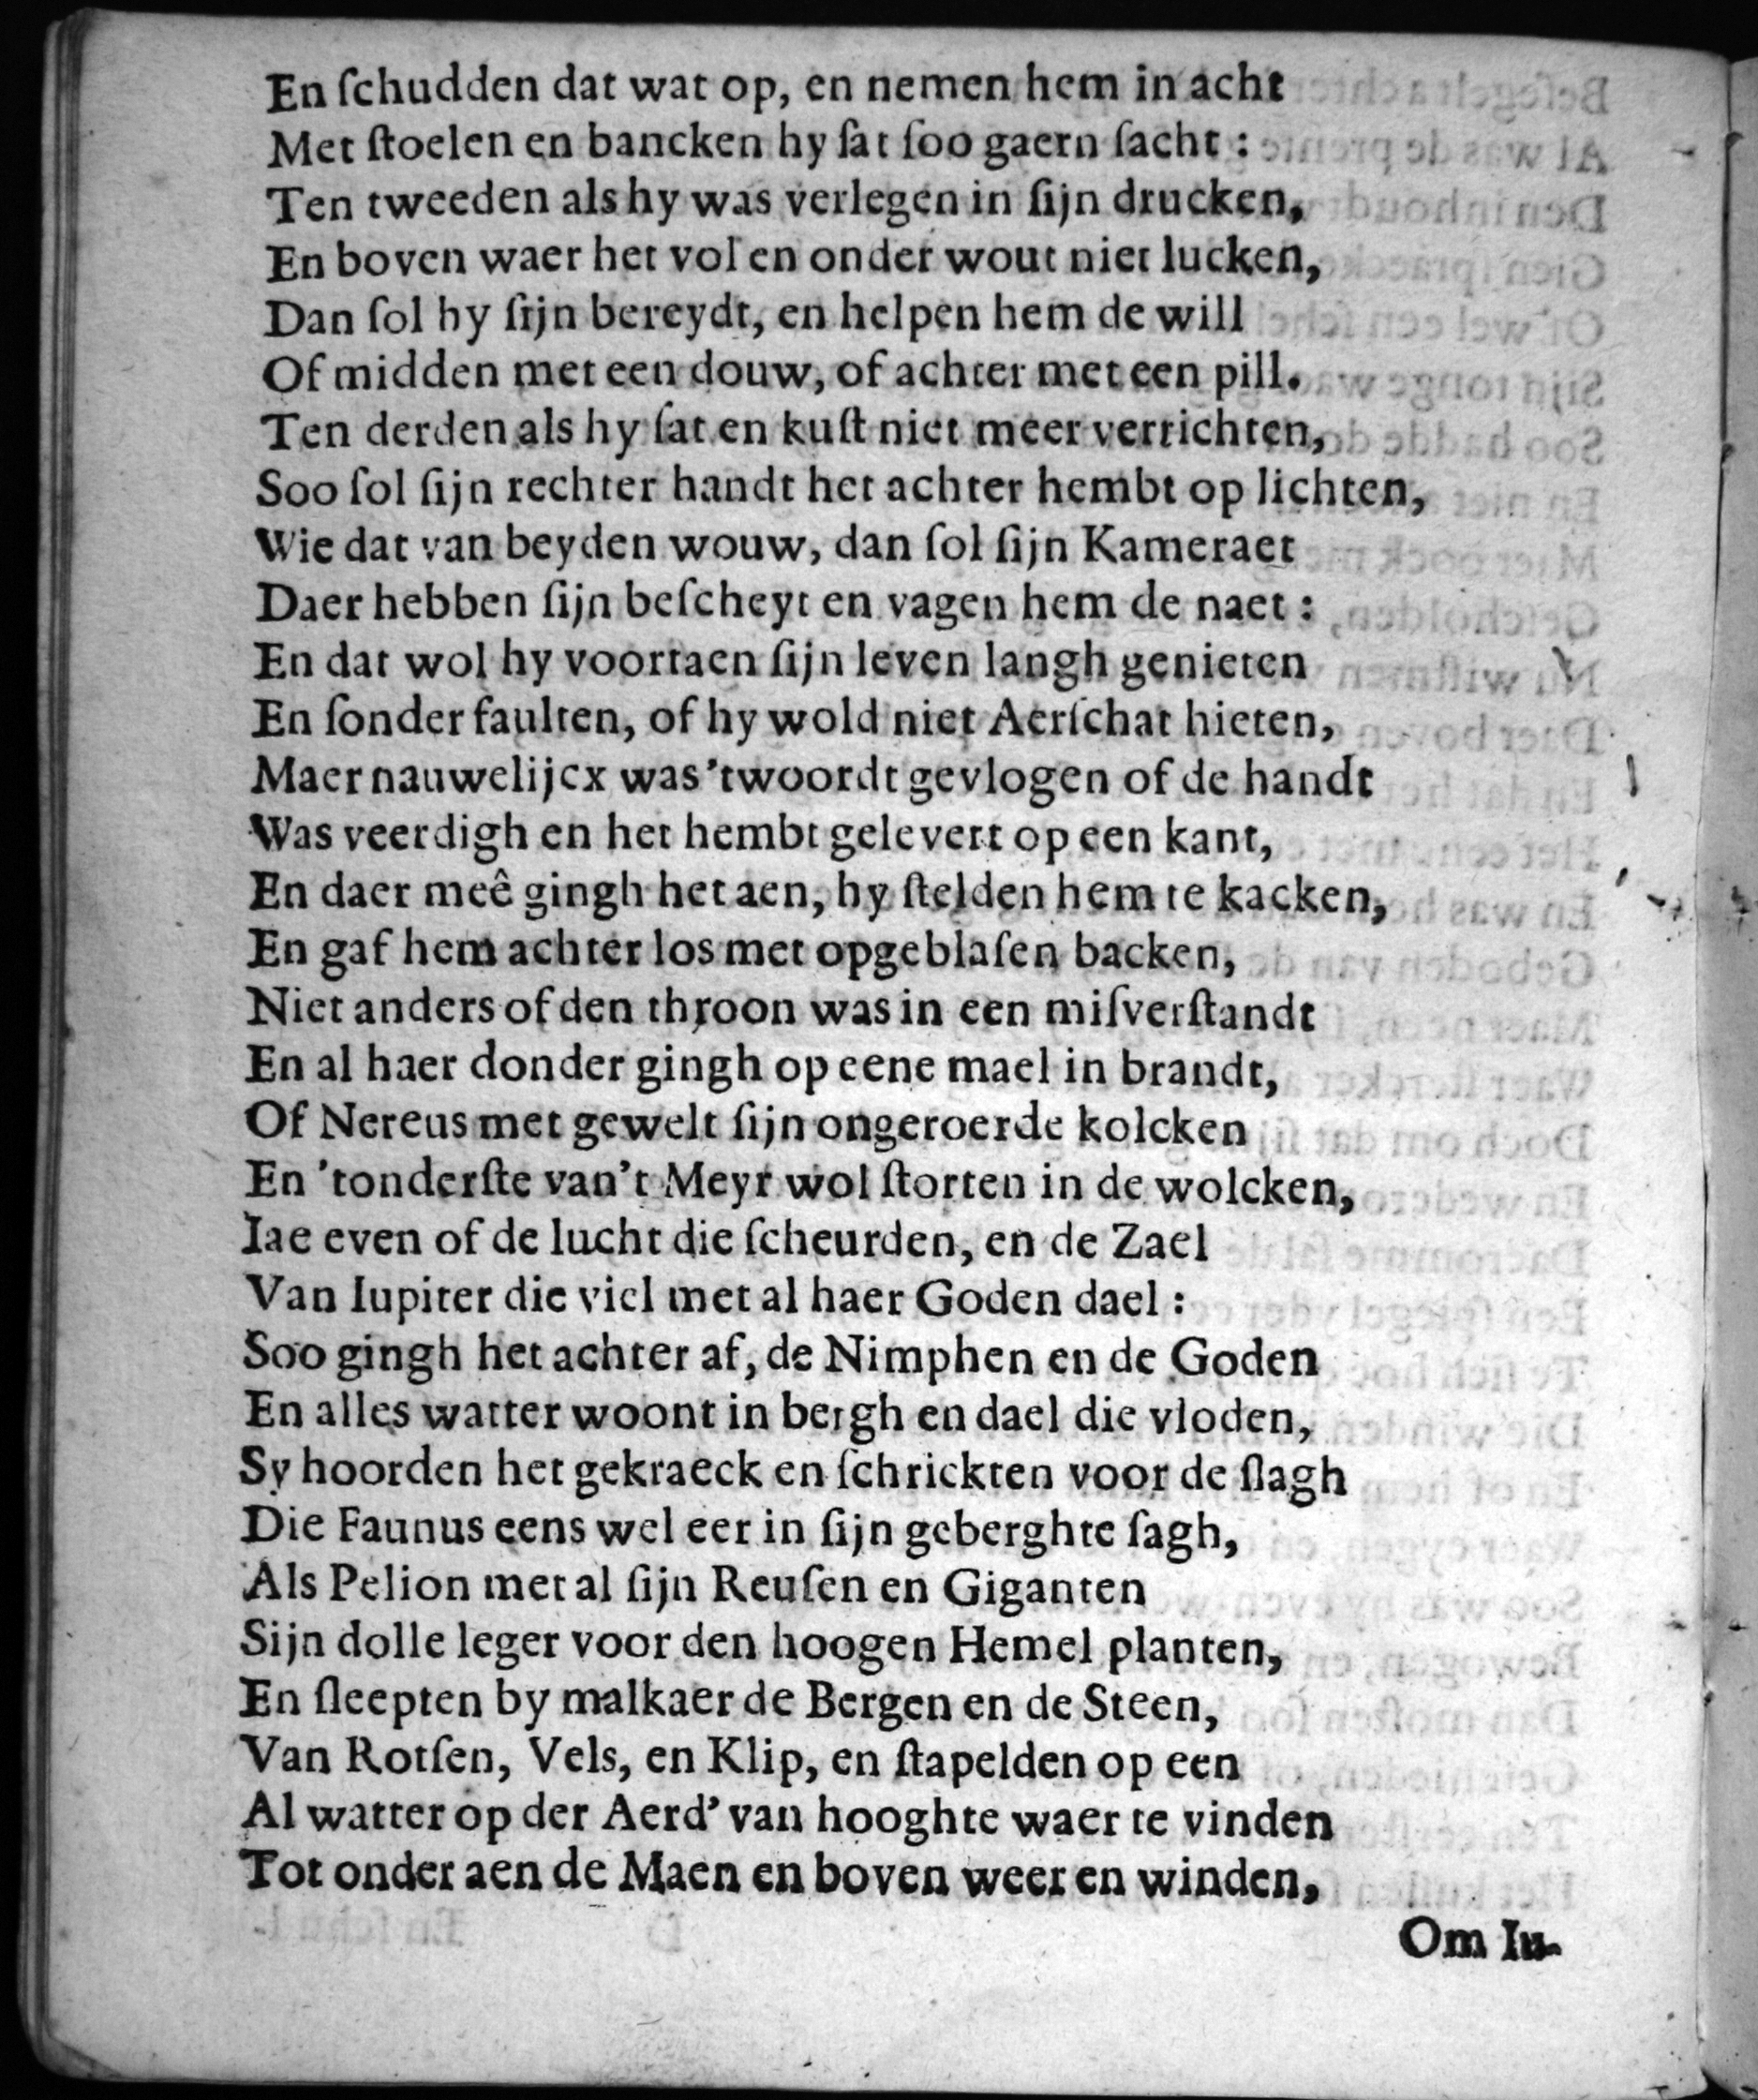 En ſchudden dat wat op, en nemen hem in acht
Met ſtoelen en bancken hy ſat ſoo gaern ſacht :
Ten tweeden als hy was verlegen in ſijn drucken,
En boven waer het vol en onder wout niet lucken,
Dan ſol hy ſijn bereydt, en helpen hem de will
Of midden met een douw, of achter met een pill.
Ten derden als hy ſat en kuſt niet meer verrichten,
Soo ſol ſijn rechter handt het achter hembt op lichten,
Wie dat van beyden wouw, dan ſol ſijn Kameraet
Daer hebben ſijn beſcheyt en vagen hem de naet :
En dat wol hy voortaen ſijn leven langh genieten
En ſonder faulten, of hy wold niet Aerſchat hieten,
Maer nauwelijcx was 'twoordt gevlogen of de handt
Was veerdigh en het hembt gelevert op een kant,
En daer meê gingh het aen, hy ſtelden hem te kacken,
En gaf hem achter los met opgeblaſen backen,
Niet anders of den throon was in een miſverſtandt
En al haer donder gingh op eene mael in brandt,
Of Nereus met gewelt ſijn ongeroerde kolcken
En 'tonderſte van't Meyr wol ſtorten in de wolcken,
Iae even of de lucht die ſcheurden, en de Zael
Van Iupiter die viel met al haer Goden dael :
Soo gingh het achter af, de Nimphen en de Goden
En alles watter woont in bergh en dael die vloden,
Sy hoorden het gekraeck en ſchrickten voor de ſlagh
Die Faunus eens wel eer in ſijn geberghte ſagh,
Als Pelion met al ſijn Reuſen en Giganten
Sijn dolle leger voor den hoogen Hemel planten,
En ſleepten by malkaer de Bergen en de Steen,
Van Rotſen, Vels, en Klip, en ſtapelden op een
Al watter op der Aerd' van hooghte waer te vinden
Tot onder aen de Maen en boven weer en winden,
Om Iu-